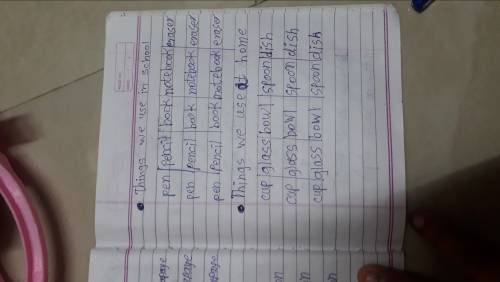 • Things we use in school
pen | pencil | book | notebook | eraser
pen | pencil | book | notebook | eraser
pen | pencil | book | notebook | eraser
• Things we use at home
cup | glass | bowl | spoon | dish
cup | glass | bowl | spoon | dish
cup | glass | bowl | spoon | dish